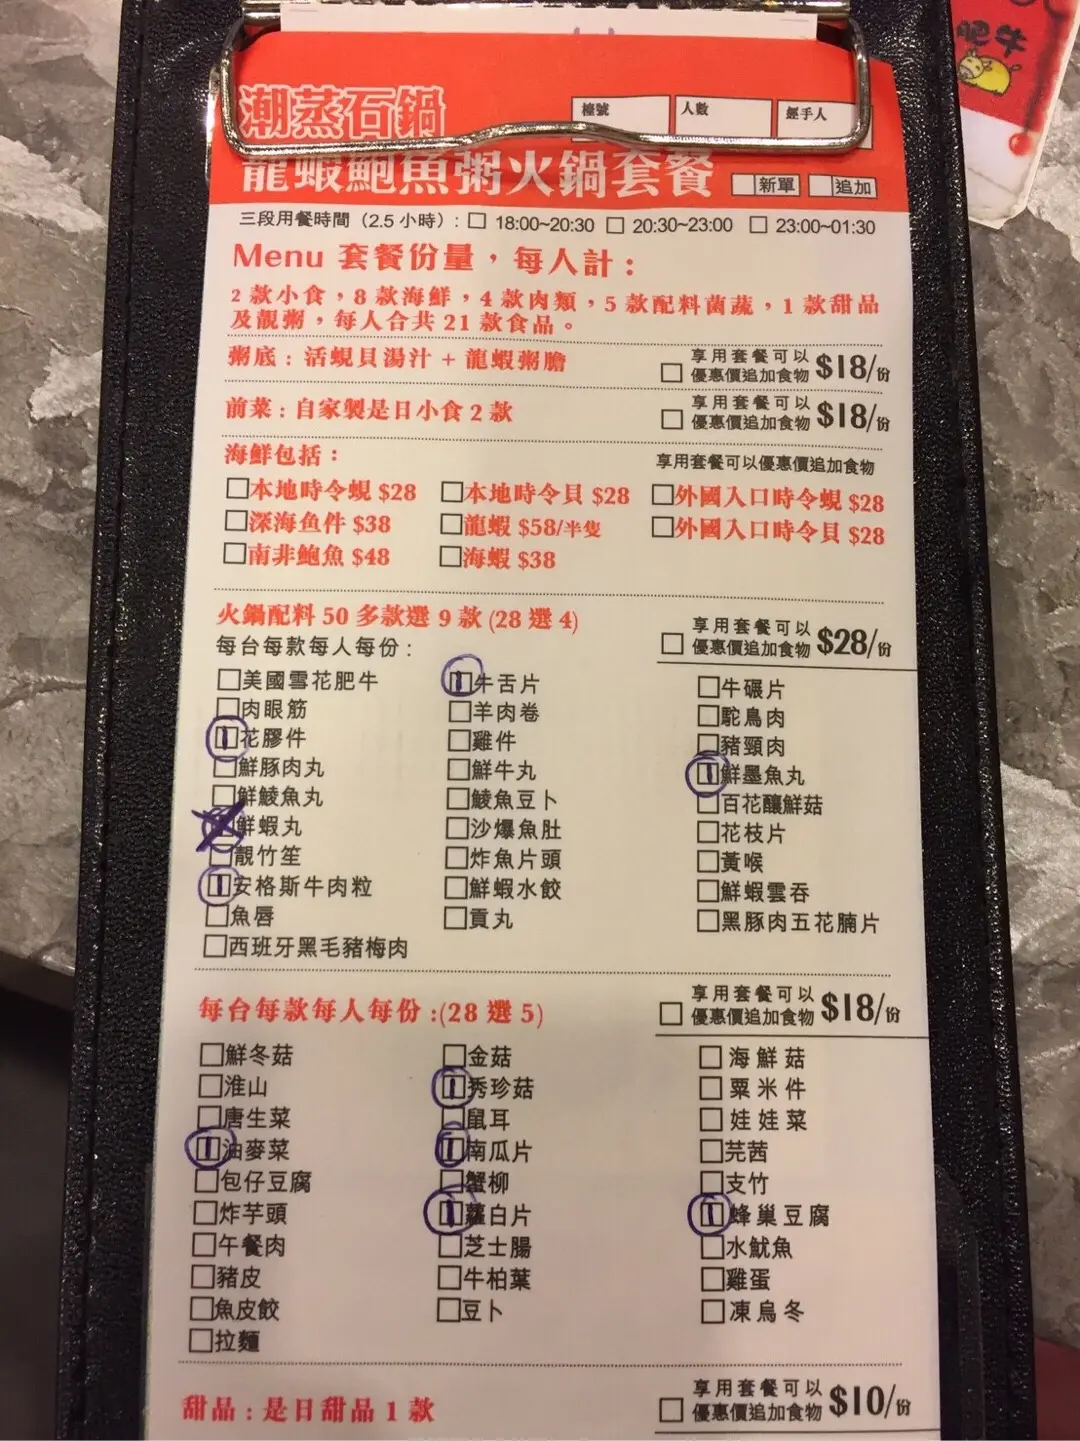 肥牛
潮蒸石鍋
檯號
人數
經手人
龍蝦鮑魚粥火鍋套餐
□新單 □追加
三段用餐時間（2.5 小時）: □ 18:00~20:30 □ 20:30~23:00 □ 23:00~01:30
Menu 套餐份量，每人計：
2 款小食，8 款海鮮，4 款肉類，5 款配料菌蔬，1 款甜品
及靚粥，每人合共 21 款食品。
粥底：活蜆貝湯汁 + 龍蝦粥膽
□ 享用套餐可以
優惠價追加食物 $18/份
前菜：自家製是日小食 2 款
□ 享用套餐可以
優惠價追加食物 $18/份
海鮮包括：
享用套餐可以優惠價追加食物
□本地時令蜆 $28 □本地時令貝 $28 □外國入口時令蜆 $28
□深海魚件 $38 □龍蝦 $58/半隻 □外國入口時令貝 $28
□南非鮑魚 $48 □海蝦 $38
火鍋配料 50 多款選 9 款 (28 選 4)
每台每款每人每份：
□ 享用套餐可以
優惠價追加食物 $28/份
□美國雪花肥牛 □牛舌片 □牛碾片
□肉眼筋 □羊肉卷 □鴕鳥肉
□花膠件 □雞件 □豬頸肉
□鮮豚肉丸 □鮮牛丸 □鮮墨魚丸
□鮮鯪魚丸 □鯪魚豆卜 □百花釀鮮菇
□鮮蝦丸 □沙爆魚肚 □花枝片
□靚竹笙 □炸魚片頭 □黃喉
□安格斯牛肉粒 □鮮蝦水餃 □鮮蝦雲吞
□魚唇 □貢丸 □黑豚肉五花腩片
□西班牙黑毛豬梅肉
每台每款每人每份 :(28 選 5)
□ 享用套餐可以
優惠價追加食物 $18/份
□鮮冬菇 □金菇 □海鮮菇
□淮山 □秀珍菇 □粟米件
□唐生菜 □鼠耳 □娃娃菜
□油麥菜 □南瓜片 □芫茜
□包仔豆腐 □蟹柳 □支竹
□炸芋頭 □蘿白片 □蜂巢豆腐
□午餐肉 □芝士腸 □水魷魚
□豬皮 □牛柏葉 □雞蛋
□魚皮餃 □豆卜 □凍烏冬
□拉麵
甜品：是日甜品 1 款
□ 享用套餐可以
優惠價追加食物 $10/份